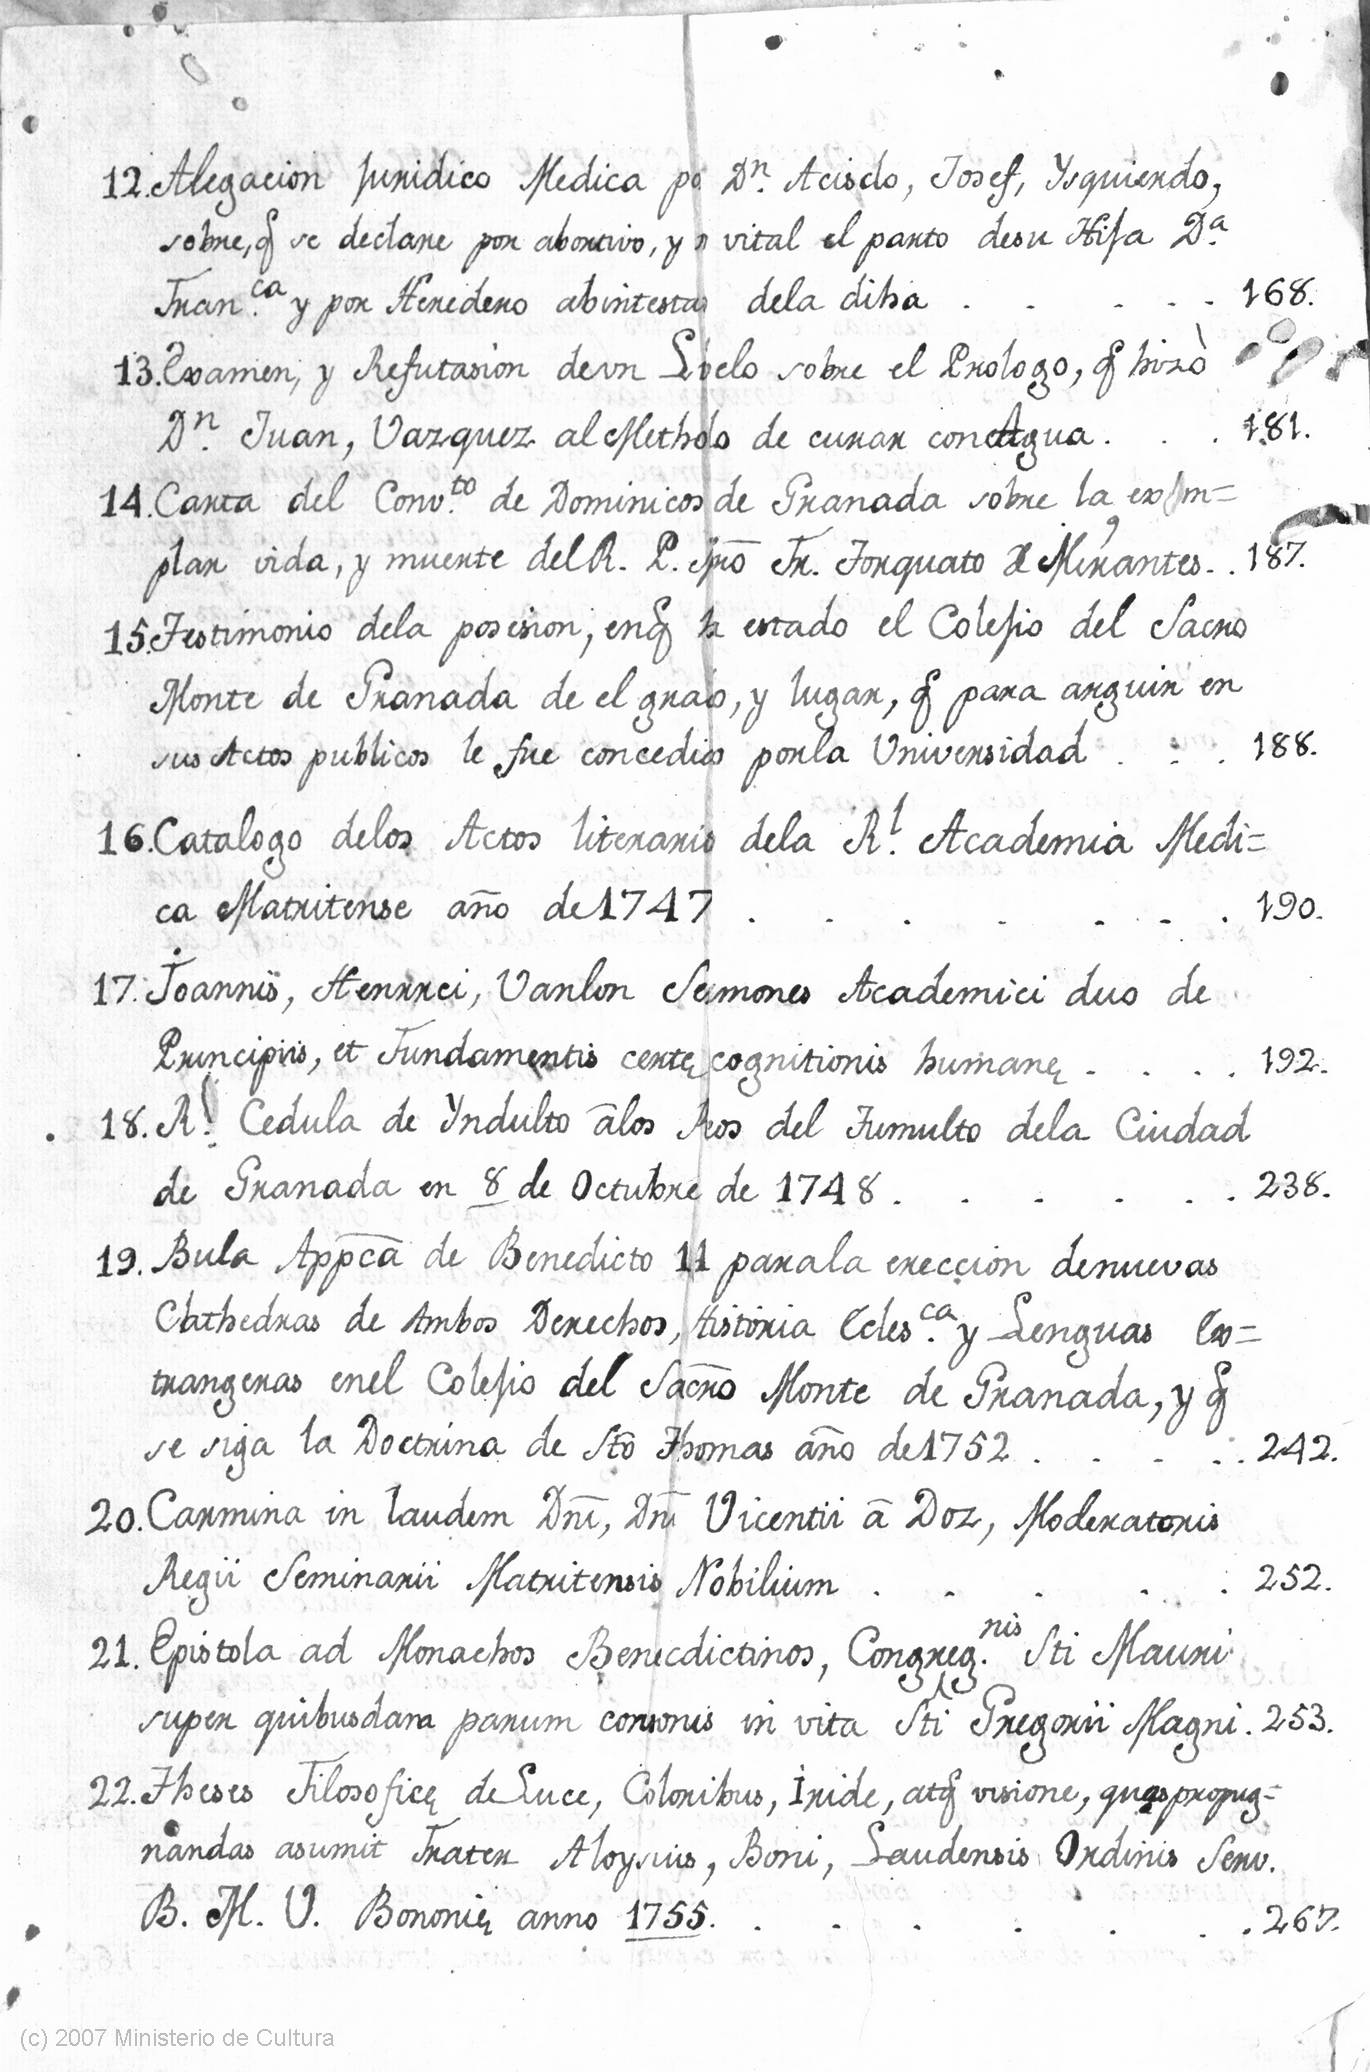 12. Alegacion Juridico Medica po Dn. Acisclo, Josef, Ysquierdo,
sobre, q̃ se declare por abortivo, y n vital el parto desu Hija Da.
Fran.ca y por Heredero abintesta dela diha . . . . . 168.
13. Examen, y Refutasion devn Libelo sobre el Prologo, q̃ hizò
Dn. Juan, Vazquez al Methdo de curar con Agua . . . 181.
14. Carta del Conv.to de Dominicos de Granada sobre la exem=
plar vida, y muerte del R. P. Mrō Fr. Torquato de Mirantes . . 187.
15. Testimonio dela posesion, enq̃ ha estado el Colejio del Sacro
Monte de Granada de el grado, y lugar, q̃ para arguir en
sus Actos publicos le fue concedido porla Universidad . . . 188.
16. Catalogo delos Actos literarios dela Rl. Academia Medi=
ca Matritense año de 1747 . . . . . . . 190.
17. Joannis, Henrrci, Vanlon Sermones Academici duo de
Principiis, et Fundamentis certę cognitionis humanę . . . . 192.
18. Rl. Cedula de Yndulto ālos Reos del Tumulto dela Ciudad
de Granada en 8 de Octubre de 1748 . . . . . . 238.
19. Bula Appcā de Benedicto 14 parala ereccion denuevas
Cathedras de Ambos Derechos, Historia Ecles.ca y Lenguas Ex=
trangeras enel Colejio del Sacrō Monte de Granada, y q̃
se siga la Doctrina de Stō Thomas año de 1752 . . . . . 242.
20. Carmina in laudem Dnī, Dnī Vicentii ā Doz, Moderatoris
Regii Seminarii Matritensis Nobilium . . . . . 252.
21. Epistola ad Monachos Benecdictinos, Congreg.nis Sti Mauri
super quibusdam parum consonis in vita Sti Gregorii Magni . 253.
22. Theses Filosoficę de Luce, Coloribus, Iride, atq̃ visione, quas propug=
nandas asumit Frater Aloysius, Boni, Laudensis Ordinis Serv.
B. M. V. Bononię anno 1755. . . . . . . . 267.
(c) 2007 Ministerio de Cultura